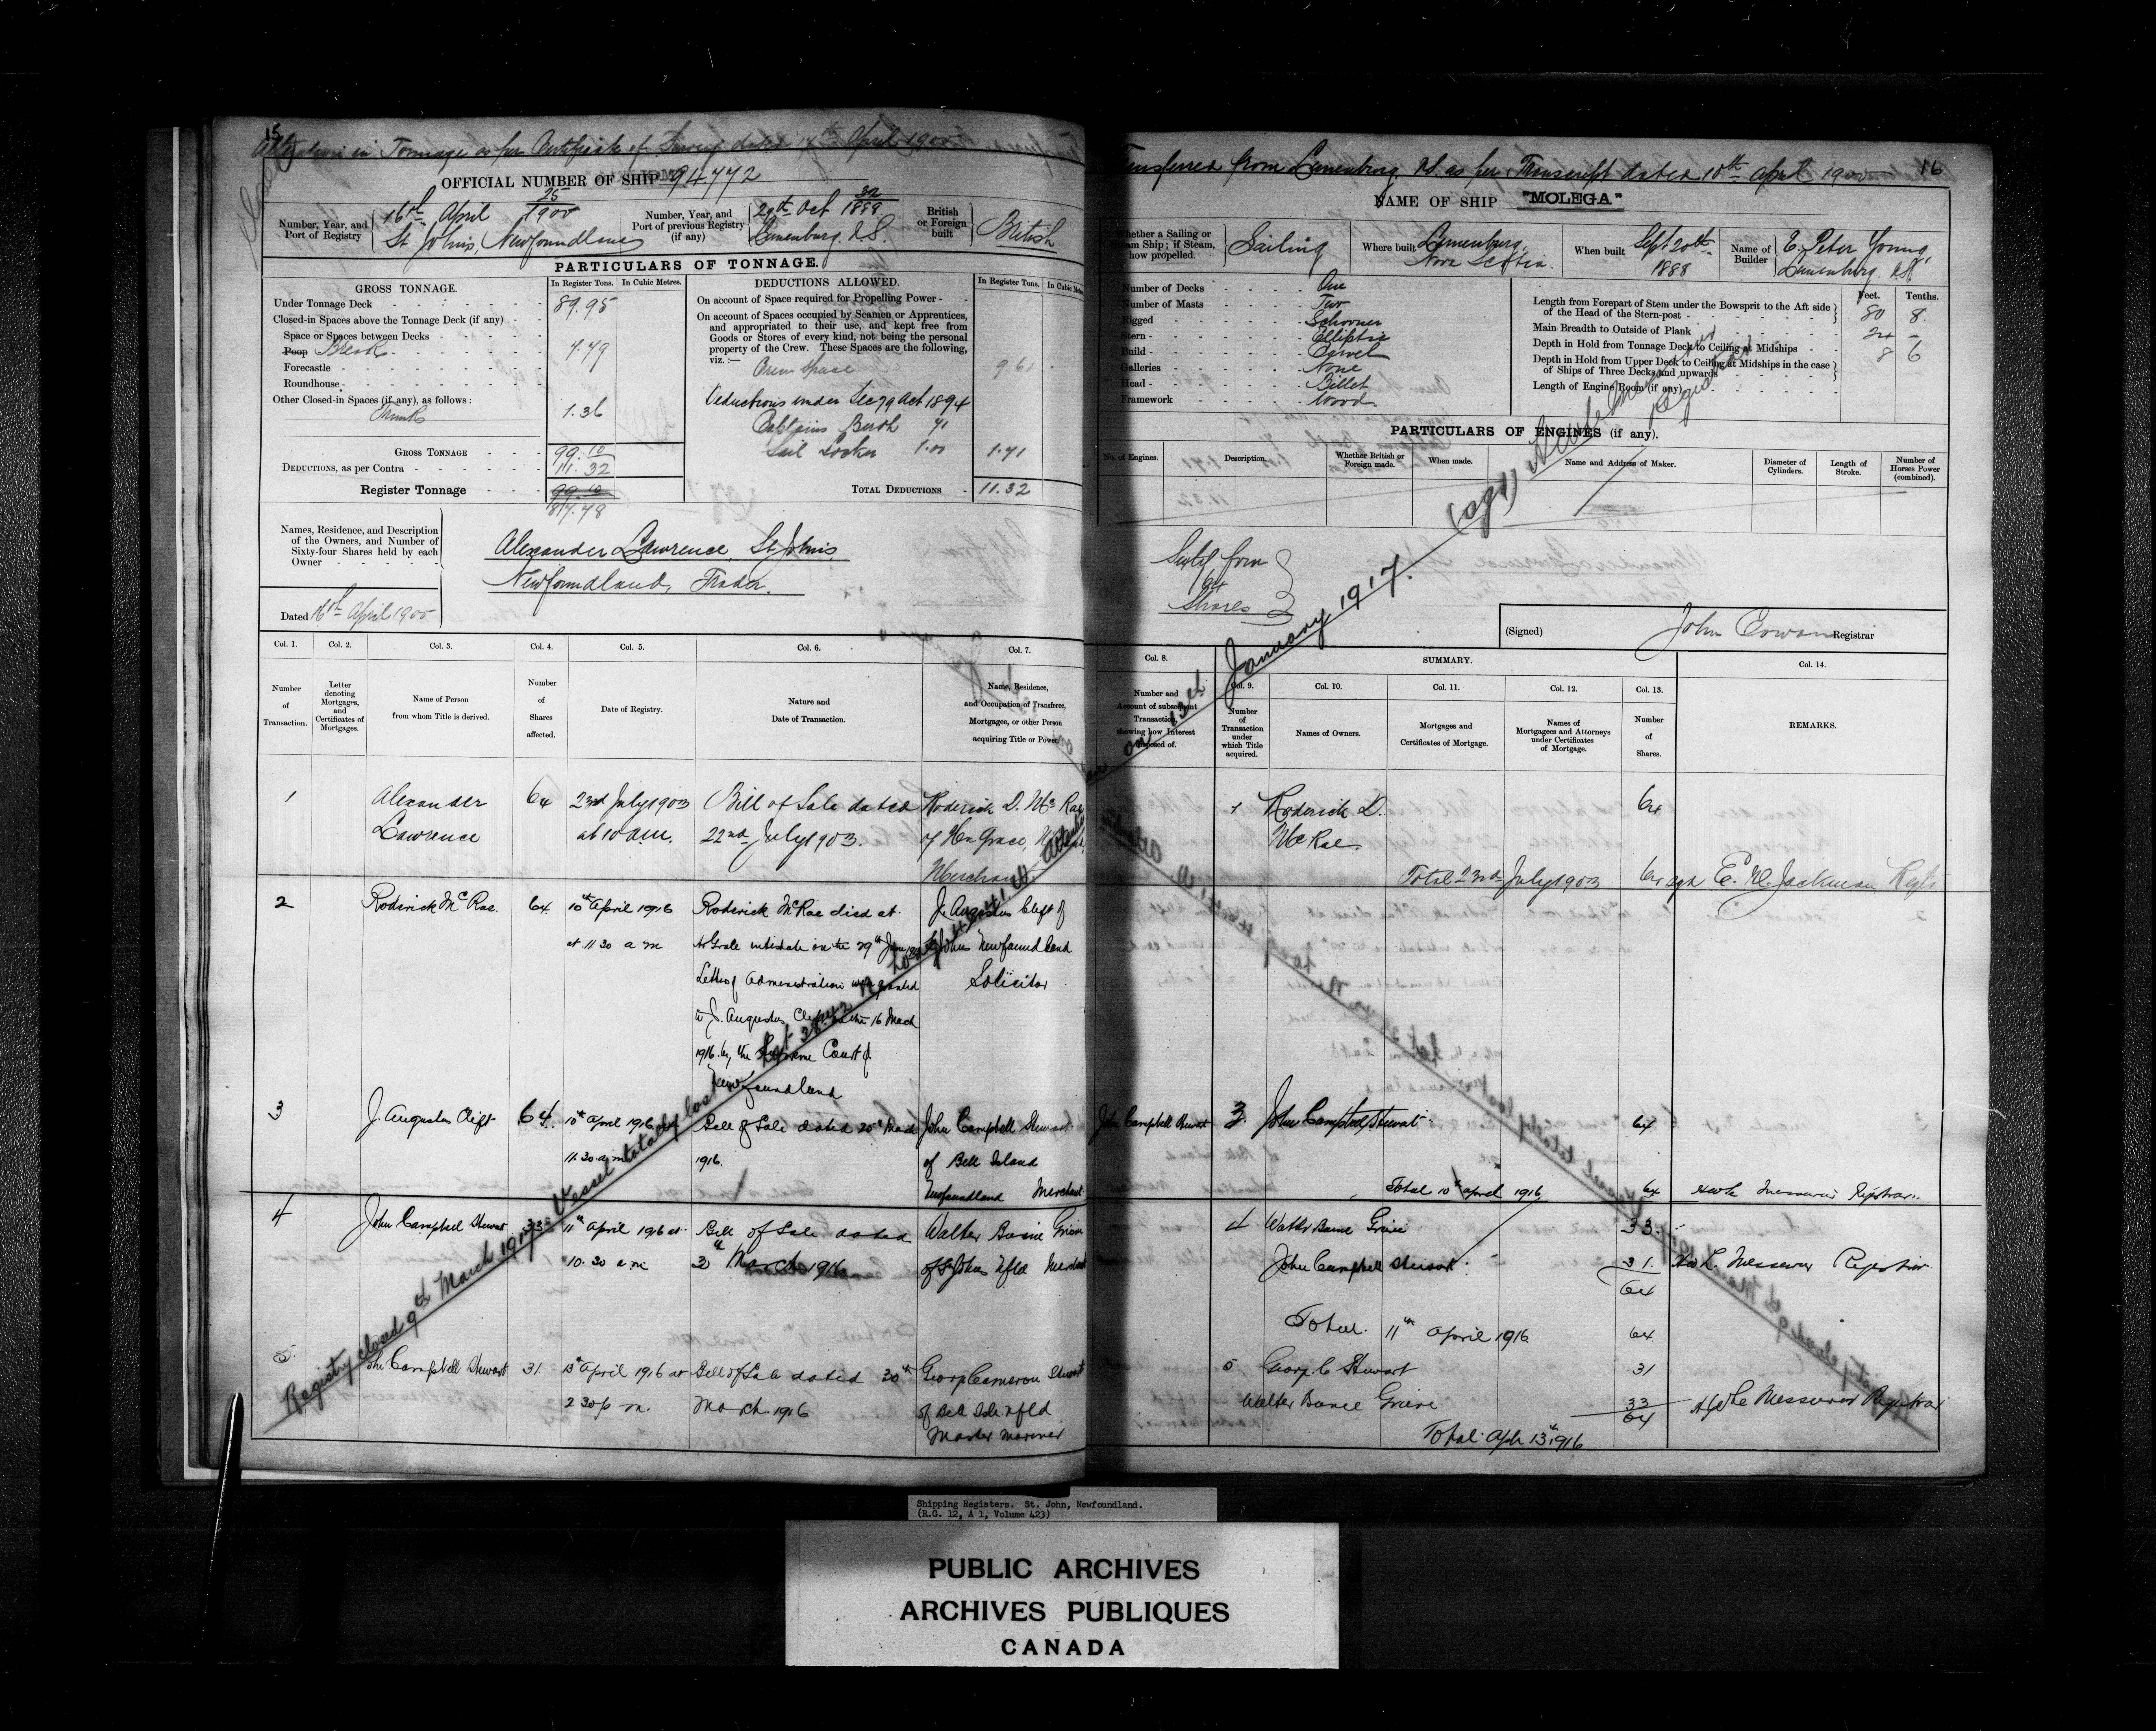 15
Alteration in Tonnage as per Certificate of Survey dated 14th April 1900
OFFICIAL NUMBER OF SHIP 94772
Number, Year, and
Port of Registry
16th April 25/1900
St Johns, Newfoundland
Number, Year, and
Port of previous Registry
(if any)
29th Oct 32/1888
Lunenburg N.S.
British
or Foreign
built
British
PARTICULARS OF TONNAGE.
GROSS TONNAGE.
In Register Tons.
In Cubic Metres.
Under Tonnage Deck 89.95
Closed-in Spaces above the Tonnage Deck (if any)
Space or Spaces between Decks
Poop Break
Forecastle
Roundhouse
Other Closed-in Spaces (if any), as follows:
Trunk 1.36
GROSS TONNAGE 99.10
DEDUCTIONS, as per Contra 11.32
Register Tonnage 99.10
87.78
DEDUCTIONS ALLOWED.
In Register Tons.
On account of Space required for Propelling Power
On account of Spaces occupied by Seamen or Apprentices,
and appropriated to their use, and kept free from
Goods or Stores of every kind, not being the personal
property of the Crew. These Spaces are the following,
viz.:—
Crew Space
Deductions under Sec 79 Act 1894
Captains Berth 41
Sail Locker 1.00 1.41
TOTAL DEDUCTIONS 11.32
Names, Residence, and Description
of the Owners, and Number of
Sixty-four Shares held by each
Owner
Alexander Lawrence, St Johns,
Newfoundland, Trader.
Dated 16th April 1900
Col. 1.
Number
of
Transaction.
Col. 2.
Letter
denoting
Mortgages,
and
Certificates of
Mortgages.
Col. 3.
Name of Person
from whom Title is derived.
Col. 4.
Number
of
Shares
affected.
Col. 5.
Date of Registry.
Col. 6.
Nature and
Date of Transaction.
Col. 7.
Name, Residence,
and Occupation of Transferee,
Mortgagee, or other Person
acquiring Title or Power.
1
Alexander
Lawrence
64
23rd July 1903
at 10 a.m.
Bill of Sale dated
22nd July 1903.
Roderick D. McRae
of Hr Grace,
Merchant
2
Roderick McRae.
64.
10th April 1916
at 11 30 a m
Roderick McRae died at
Hr Grace intestate on the 29th
Letters of Administration were granted
to J. Augustus Clift 16 March
1916 by the Supreme Court of
Newfoundland
J. Augustus Clift of
St Johns Newfoundland
Solicitor
3
J. Augustus Clift
64.
10th April 1916
11.30 a m
Bill of Sale dated 20th March
1916.
John Campbell Stewart
of Bell Island
Newfoundland Merchant
4
John Campbell Stewart
33
11th April 1916 at
10.30 a m
Bill of Sale dated
March 1916
Walter Baine Grieve
of St Johns Nfld Merchant
5
John Campbell Stewart
31.
13th April 1916 at
2 30 p m.
Bill of Sale dated 30th
March 1916
George Cameron Stewart
of Bell Isle Nfld
Master Mariner
Registry closed 9th March 1917. Vessel totally lost
on 13th January 1917.
Transferred from Lunenburg N.S. as per Transcript dated 10th April 1900
16
NAME OF SHIP "MOLEGA"
Whether a Sailing or
Steam Ship; if Steam,
how propelled.
Sailing
Where built
Lunenburg,
Nova Scotia.
When built
Sept 20th
1888
Name of
Builder
E. Peter Young,
Lunenburg. NS
Number of Decks One
Number of Masts Two
Rigged Schooner
Stern Elliptic
Build Carvel
Galleries None
Head Billet
Framework Wood
Feet. Tenths.
Length from Forepart of Stem under the Bowsprit to the Aft side
of the Head of the Stern-post 80 8.
Main Breadth to Outside of Plank 24 –
Depth in Hold from Tonnage Deck to Ceiling at Midships 8 6
Depth in Hold from Upper Deck to Ceiling at Midships in the case
of Ships of Three Decks and upwards
Length of Engine Room (if any)
PARTICULARS OF ENGINES (if any).
No. of Engines.
Description.
Whether British or
Foreign made.
When made.
Name and Address of Maker.
Diameter of
Cylinders.
Length of
Stroke.
Number of
Horses Power
(combined).
Sixty four
64
Shares
(Signed) John Cowan Registrar
Col. 8.
Number and
Account of subsequent
Transaction,
showing how Interest
disposed of.
SUMMARY.
Col. 9.
Number
of
Transaction
under
which Title
acquired.
Col. 10.
Names of Owners.
Col. 11.
Mortgages and
Certificates of Mortgage.
Col. 12.
Names of
Mortgagees and Attorneys
under Certificates
of Mortgage.
Col. 13.
Number
of
Shares.
Col. 14.
REMARKS.
1
Roderick D.
McRae
64
Total 23rd July 1903 64
sgd E. M. Jackman Regr
John Campbell Stewart
3.
John Campbell Stewart
64
Total 10th April 1916 64
Messervey Registrar
4
Walter Baine Grieve 33.
John Campbell Stewart 31.
64
H W L Messervey Registrar
Total. 11th April 1916 64
5
George C Stewart 31
Walter Baine Grieve 33
64
H W Le Messervey Registrar
Total Apl 13th 1916
Shipping Registers. St. John, Newfoundland.
(R.G. 12, A 1, Volume 423)
PUBLIC ARCHIVES
ARCHIVES PUBLIQUES
CANADA